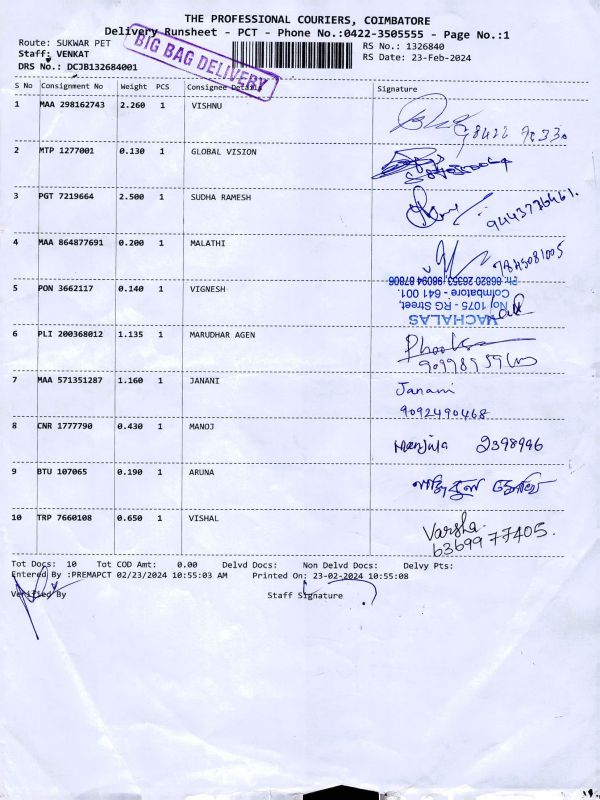 THE PROFESSIONAL COURIERS, COIMBATORE
Delivery Runsheet - PCT - Phone No.:0422-3505555 - Page No.:1
Route: SUKWAR PET
RS No.: 1326840
Staff: VENKAT
RS Date: 23-Feb-2024
DRS No.: DCJB132684001
BIG BAG DELIVERY
S No Consignment No Weight PCS Consignee Details Signature
1 MAA 298162743 2.260 1 VISHNU
2 MTP 1277001 0.130 1 GLOBAL VISION
3 PGT 7219664 2.500 1 SUDHA RAMESH
9443736461.
4 MAA 864877691 0.200 1 MALATHI
5 PON 3662117 0.140 1 VIGNESH
VACHALAS
No: 1075 - RG Street,
Coimbatore - 641 001.
Ph: 86820 26353, 98094 87806
6 PLI 200368012 1.135 1 MARUDHAR AGEN
7 MAA 571351287 1.160 1 JANANI
Janani
9092490468
8 CNR 1777790 0.430 1 MANOJ
Manjula 2398996
9 BTU 107065 0.190 1 ARUNA
10 TRP 7660108 0.650 1 VISHAL
Varsha.
6369977405.
Tot Docs: 10 Tot COD Amt: 0.00 Delvd Docs: Non Delvd Docs: Delvy Pts:
Entered By :PREMAPCT 02/23/2024 10:55:03 AM Printed On: 23-02-2024 10:55:08
Verified By Staff Signature